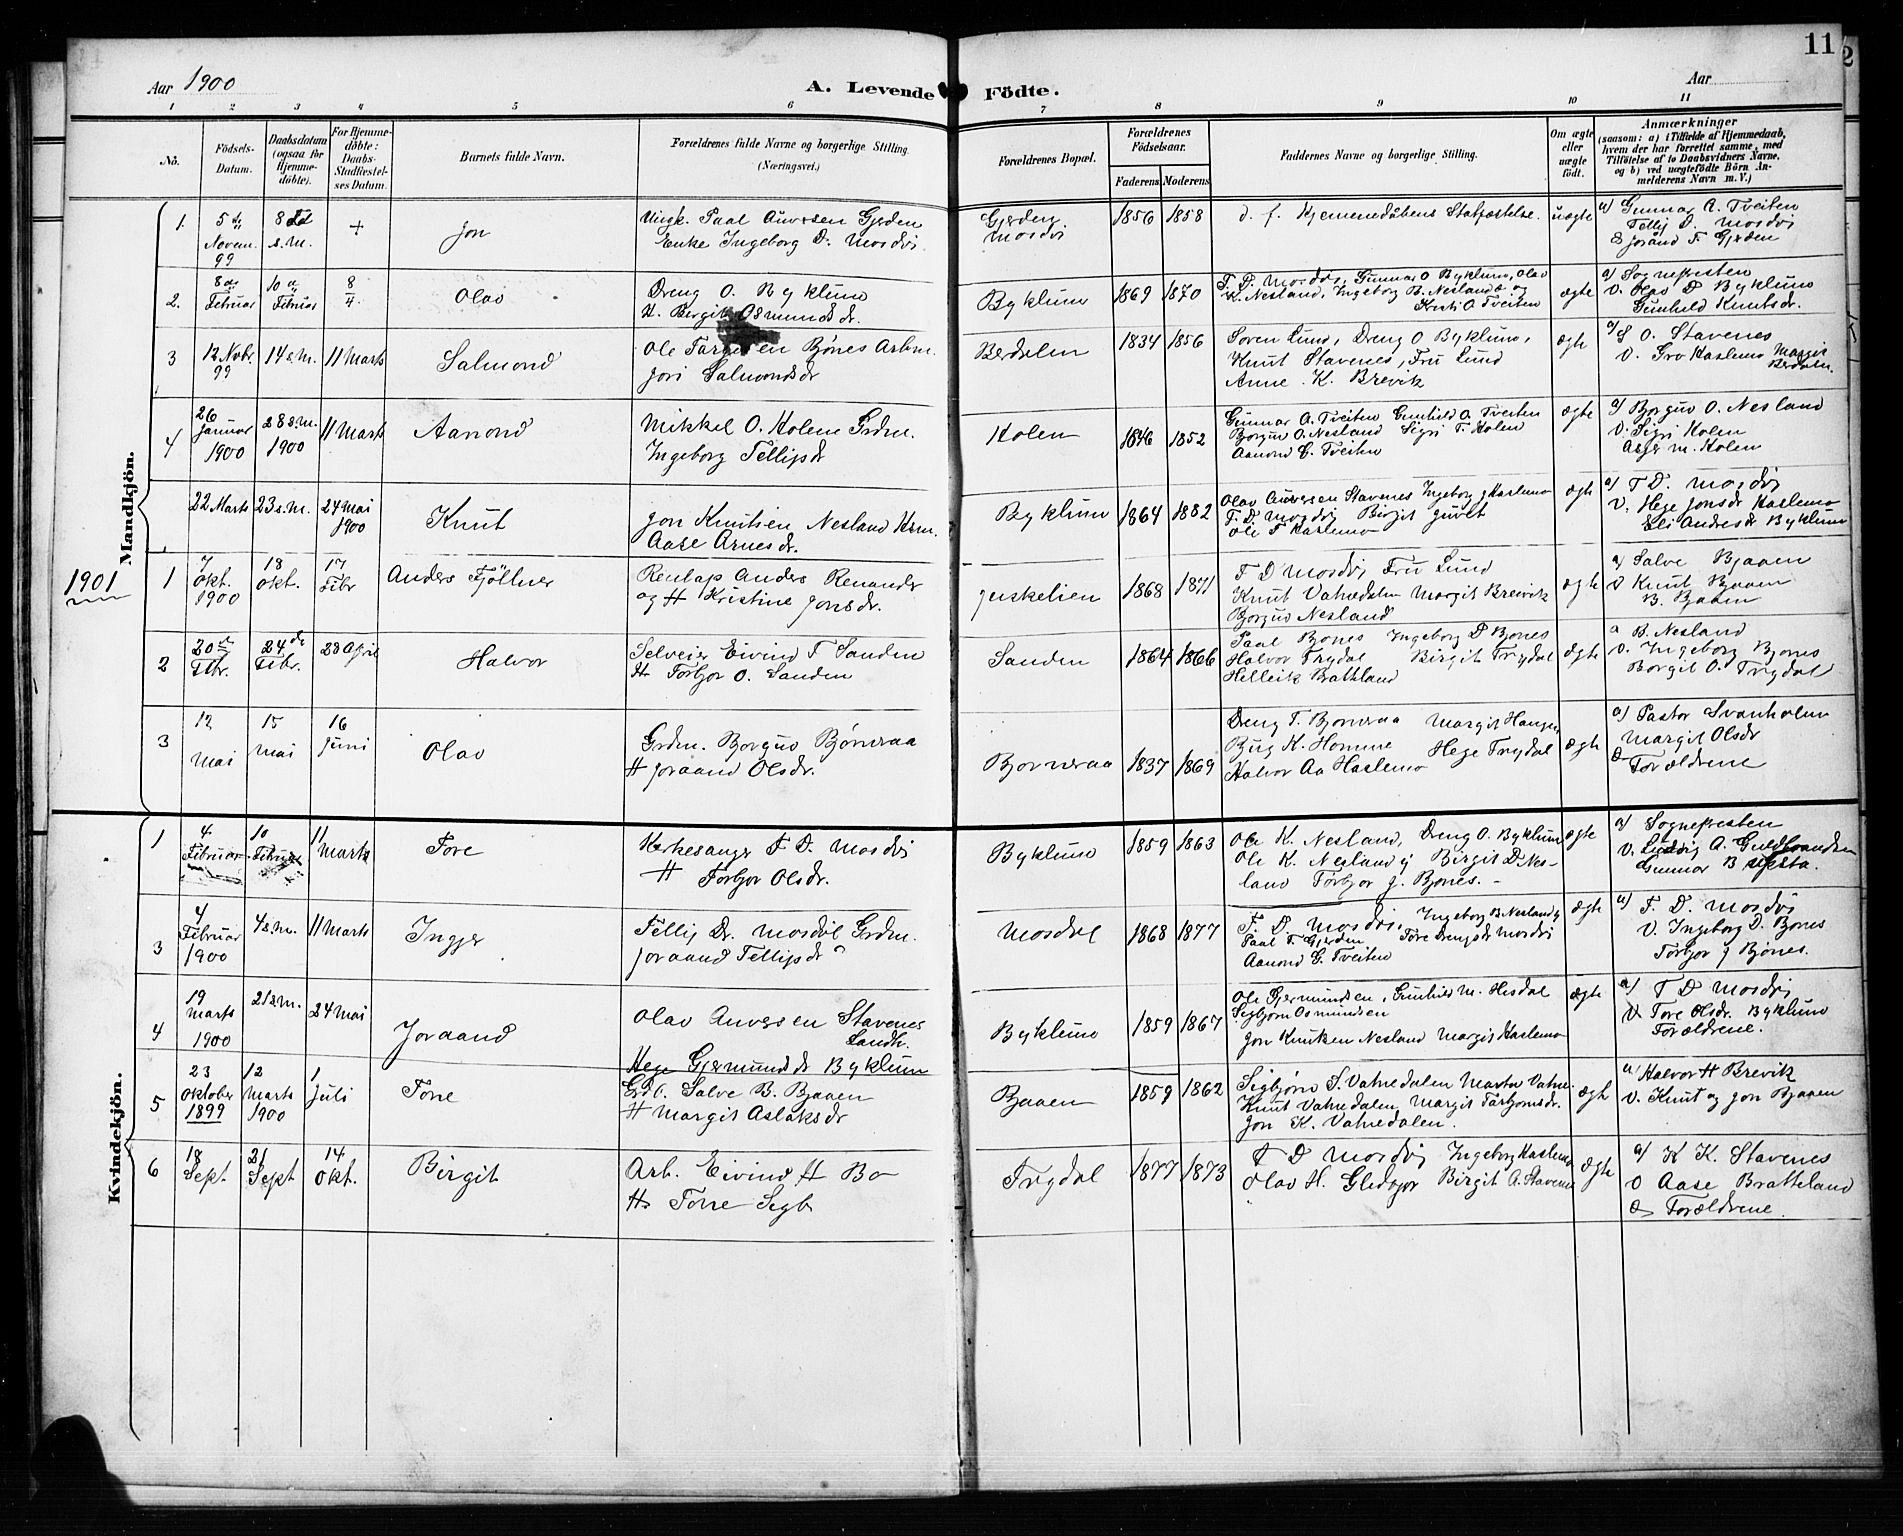 11
Aar 1900
A. Levende Födte.
Aar
1 2 3 4 5 6 7 8 9 10 11
No.
Födsels-Datum.
Daabsdatum (ogsaa for Hjemme-döbte).
For Hjemme-döbte: Daabs-Stadfæstel-ses Datum.
Barnets fulde Navn.
Forældrenes fulde Navne og borgerlige Stilling. (Næringsvei.)
Forældrenes Bopæl.
Forældrenes Födselsaar.
Faderens Moderens
Faddernes Navne og borgerlige Stilling.
Om ægte eller uægte födt.
Anmærkninger
(saasom: a) i Tilfælde af Hjemmedaab, hvem der har forrettet samme, med Tilföielse af to Daabsvidners Navne, og b) ved uægtefödte Börn An-melderens Navn m. V.)
Mandkjön.
1. 5 de Novem 99 8 de s.m. + Jon
Ungk. Paal Auversen Gjerden
Enke Ingeborg D. Mosdøi
Gjerden Mosdøi 1856 1858
d. f. Hjemmedåbens Statfæstelse. uægte
a) Gunnar A. Tveiten
Tellij D. Mosdøi
& Joránd T. Gjerden
2. 8 de Februar 10 de Februar 8/4 Olav
Dreng O. Byklum
H. Bergit Osmundsdr.
Byklum 1869 1870
T. D. Mosdøi, Gunnar O Byklum, Olav
K. Nesland, Ingeborg B. Nesland og
Kristi O Tveiten
ægte
a) Sognepresten
v. Olav D Byklum
Gunhild Knutsdr.
3 12 Novbr 99 14 s.m. 11 Marts Salmond
Ole Tarjeisen Bjønes Arbm.
Jori Salmondsdr
Berdalen 1834 1856
Søren Lund, Dreng O Byklum,
Knut Stavenes, Fru Lund
Anne K. Brevik
ægte
a) S O. Stavenes
v. Gro Haslemo Margit
Berdalen.
4 26 Januar 1900 28 s.m. 1900 11 Marts Aanond
Mikkel O. Holene Grdm.
Ingeborg Tellijsdr
Holen 1846 1852
Gunnar A. Tveiten Gunhild O. Tveiten
Borguv O. Nesland Sigri T. Holen
Aanond G. Tveiten
ægte
a) Borguv O. Nesland
v. Sigri Holen
Asger M. Holen
22 Marts 23 s.m. 24 Mai 1900 Knut
Jon Knutsen Nesland Hsm.
Aase Arnesdr.
Byklum 1864 1882
Olav Auversen Stavenes Ingeborg J Haslemo
T. D. Mosdøi Birgit Juvet
Ole T Haslemo
ægte
a) T D. Mosdøi
v. Hege Jonsdr Haslemo
Eli Andresdr Byklum
1901
1 7 Okt. 1900 18 Okt. 17 Febr Anders Fjöllner
Renlap Anders Renander
og H Kristine Jonsdr.
Juskelien 1868 1871
T D Mosdøi Fru Lund
Knut Vatnedalen Margit Breivik
Borguv Nesland
ægte
a) Salve Bjaaen
v Knut Bjaaen
B. Bjaaen
2 20 de Febr. 24 de Febr. 28 April Halvor
Selveier Eivind T Sanden
H Torbjor O. Sanden
Sanden 1864 1866
Paal Bjones Ingeborg D Bjones
Halvor Trydal Birgit Trydal
Helleik Bratteland
ægte
a B. Nesland
v. Ingeborg Bjones
Borgil O. Trydal
3 12 Mai 15 Mai 16 Juni Olav
Grdm. Borguv Bjørnraa
H Joraand Olsdr.
Bjørneraa 1837 1869
Dreng T. Bjorneraa Margit Hangen
Byrg K. Homme Hege Trydal
Halvor Aa Haslemo
ægte
a) Pastor Svanholm
Margit Olsdr
& Forældrene
Kvindekjön.
1 4 Februar 10 Februar 11 Marts Tore
Kirkesanger T D. Mosdøi
H Torbjor Olsdr.
Byklum 1859 1863
Ole K. Nesland, Dreng O. Byklum
Ole K. Nesland y Birgit D Nes-
land Torbjor J. Bjones. -
ægte
a) Sognepresten
v. Ludvig A. Guldbrandsen
Gunnar B
3 4 Februar 1900 4 s.m. 11 Marts Ingjer
Tellij Dr. Mosdøl Grdm.
Joraand Tellijsdr
Mosdøl 1868 1877
T. D. Mosdøi Ingeborg B. Nesland y
Paal T. Gjerden Tore Drengsdr Mosdøi
Aanond G. Tveiten
ægte
a) T. D. Mosdøi
v. Ingeborg D. Bjones
Torbjor J Bjones.
4 19 Marts 1900 21 s.m. 24 Mai Joraand
Olav Auversen Stavenes
Landh.
Hege Gjermundsdr Byklum
Byklum 1859 1867
Ole Gjermundsen, Gunhild M. Hisdal
Sigbjørn Osmundsen
Jon Knutsen Nesland Margit Haslemo
ægte
a) T D Mosdøi
v Tore Olsdr. Byklum
Forældrene.
5 23 Oktober 1899 12 Marts 1900 1 Juli Tone
Grd. Salve B. Bjaaen
H Margit Aslaksdr
Bjaaen 1859 1862
Sigbjørn S. Vatnedalen Marta Vatne.
Knut Vatnedalen Margit Tarbjornsdr.
Jon K. Vatnedalen.
ægte
a) Halvor H Brevik
v. Knut og Jon Bjaaen
6 18 Sept 21 Sept 14 Okt. Birgit
Arb. Eivind H Bo
H Torre Segb
Trydal 1877 1873
T D Mosdøi Ingeborg Haslemo
Olav H. Glidsjor Birgit A. Stavenes
ægte
a) K K. Stavenes
v Aase Bratteland
& Forældrene.